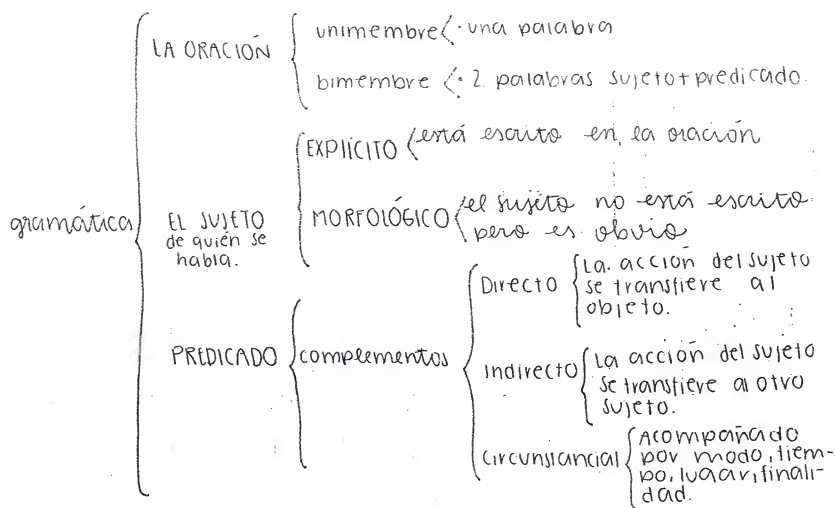 gramática
LA ORACIÓN
unimembre · una palabra
bimembre · 2 palabras sujeto + predicado.
EL SUJETO
de quién se
habla.
EXPLÍCITO está escrito en la oración
MORFOLÓGICO el sujeto no está escrito
pero es obvio
PREDICADO
complementos
Directo
La acción del sujeto
se transfiere al
objeto.
Indirecto
La acción del sujeto
se transfiere al otro
sujeto.
Circunstancial
Acompañado
por modo, tiem-
po, lugar, finali-
dad.